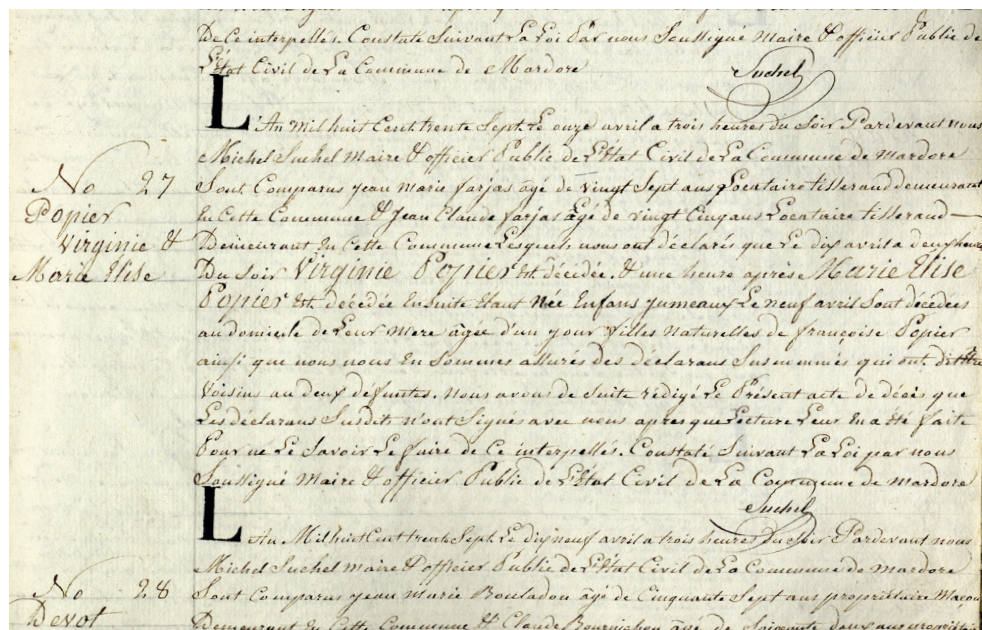 De Ce interpellés. Constaté Suivant La Loi Par nous Soussigné Maire & officier Public de
L'Etat Civil de La Commune de Mardore
Suchel
L'An Mil huit Cent trente Sept. Le onze avril a trois heures du Soir Pardevant nous
Michel Suchel Maire & officier Public de L'Etat Civil de La Commune de mardore
No 27
Popier
Virginie &
Marie Elise
Sont Comparus jean marie farjas âgé de vingt Sept ans Locataire tisserand demeurant
En Cette Commune & Jean Claude farjas âgé de vingt Cinq ans Locataire tisserand
Demeurant En Cette Commune Lesquels nous ont déclarés que Le dix avril a deux heures
Du Soir Virginie Popier Est décédée. & une heure après Marie Elise
Popier Est décédée Ensuite Etant Née Enfans jumeaux Le neuf avril Sont décédées
au domicile de Leur Mere âgée d'un jour filles naturelles de françoise Popier
ainsi que nous nous En Sommes assurés des déclarans Susnommés qui ont dit Etre
Voisins au deux défuntes. nous avons de Suite rédigé Le Présent acte de décès que
Les déclarans Susdits n'ont Signés avec nous apres que Lecture Leur En a Eté faite
Pour ne Le Savoir Le faire de Ce interpellés. Constaté Suivant La Loi par nous
Soussigné Maire & officier Public de L'Etat Civil de La Commune de mardore
Suchel
L'An Mil huit Cent trente Sept. Le dix neuf avril a trois heures Du Soir Pardevant nous
Michel Suchel maire & officier Public de L'Etat Civil de La Commune de mardore
No 28
Devot
Sont Comparus jean marie Bouladon âgé de Cinquante Sept ans propriétaire Maçon
Demeurant En Cette Commune & Claude Bournichon âgé de Soixante deux ans propriétaire